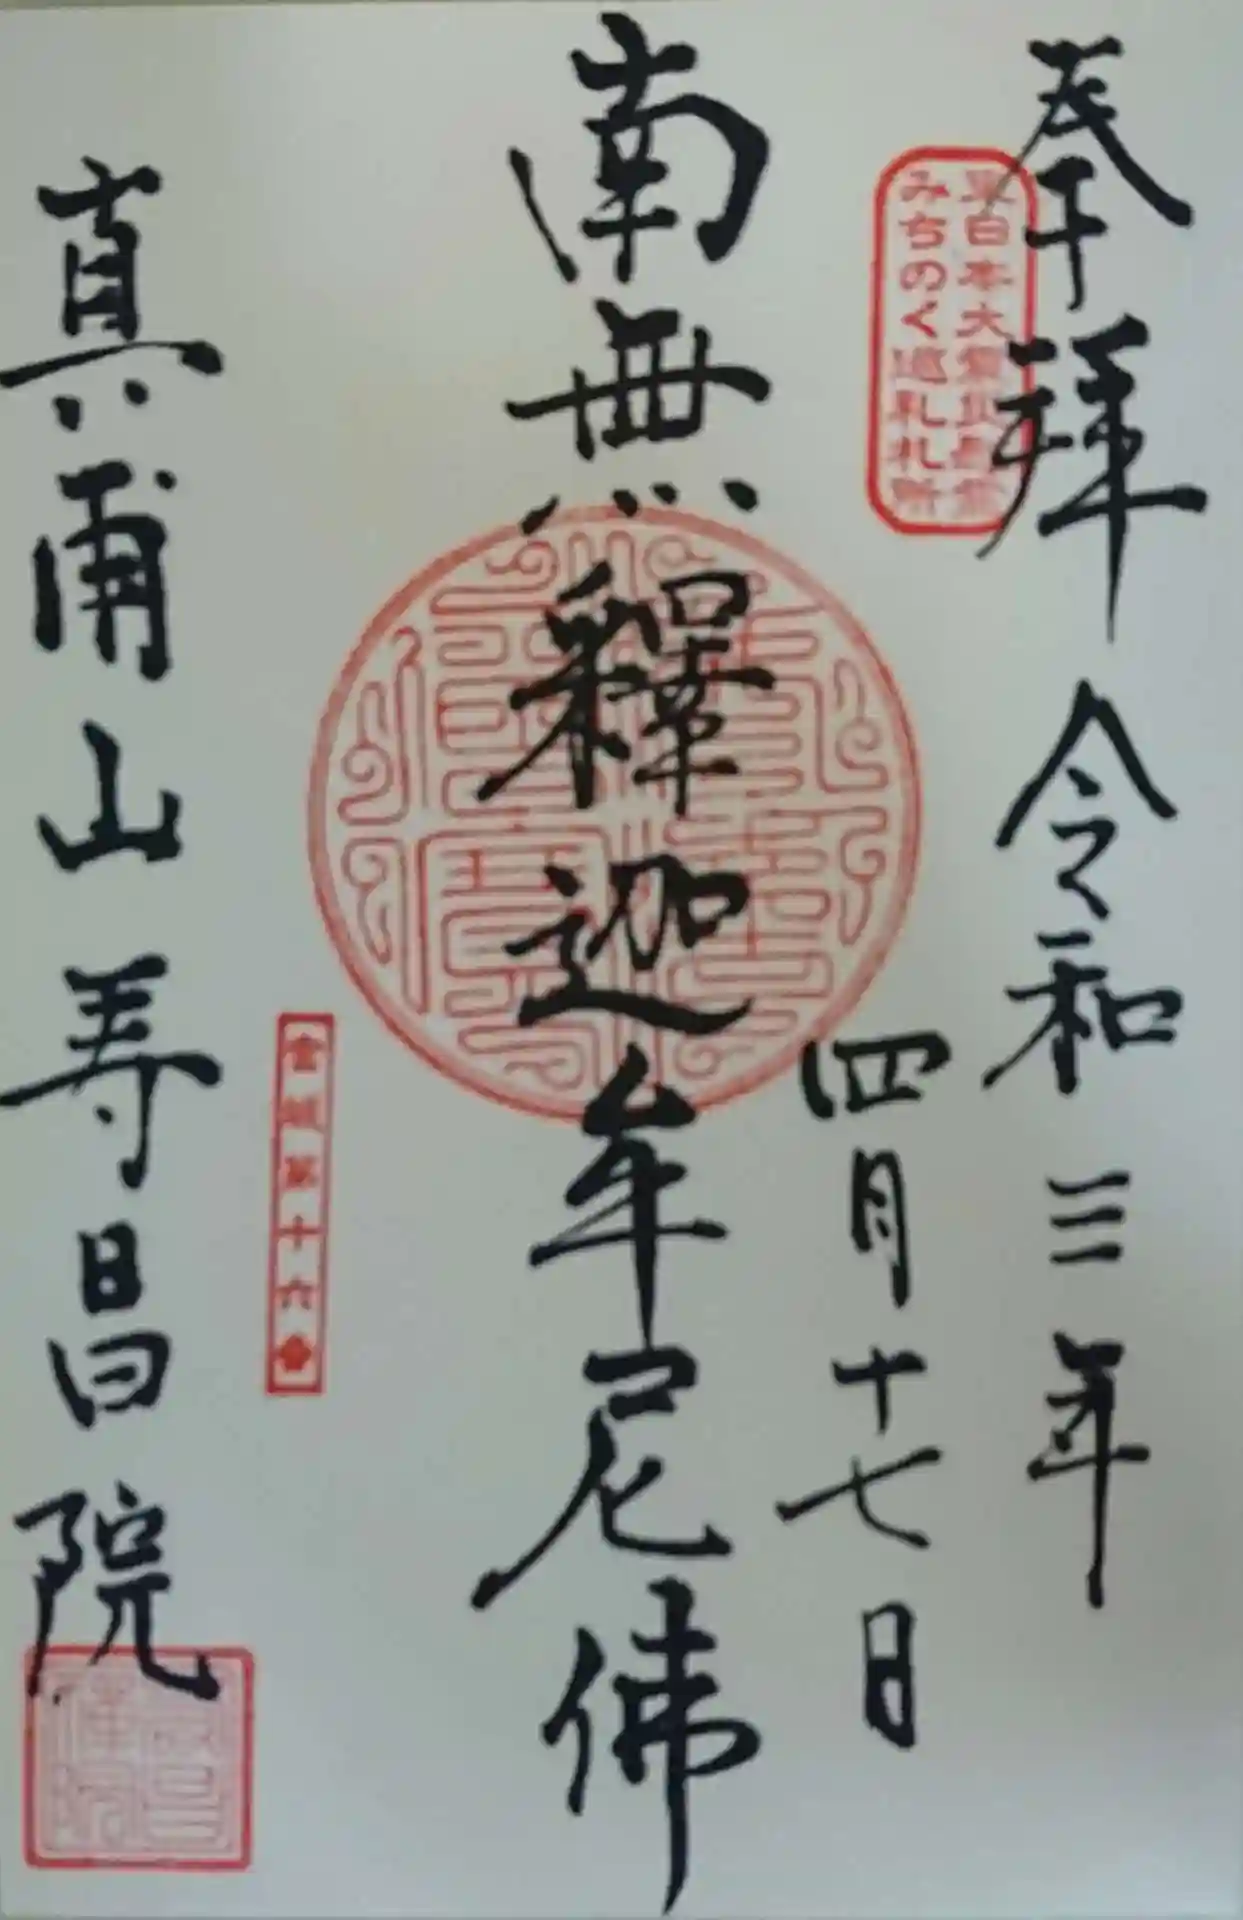 奉拝 令和三年
四月十七日
東日本大震災慰霊
みちのく巡礼札所
南無釋迦牟尼佛
宮城第十六番
真甫山寿昌院